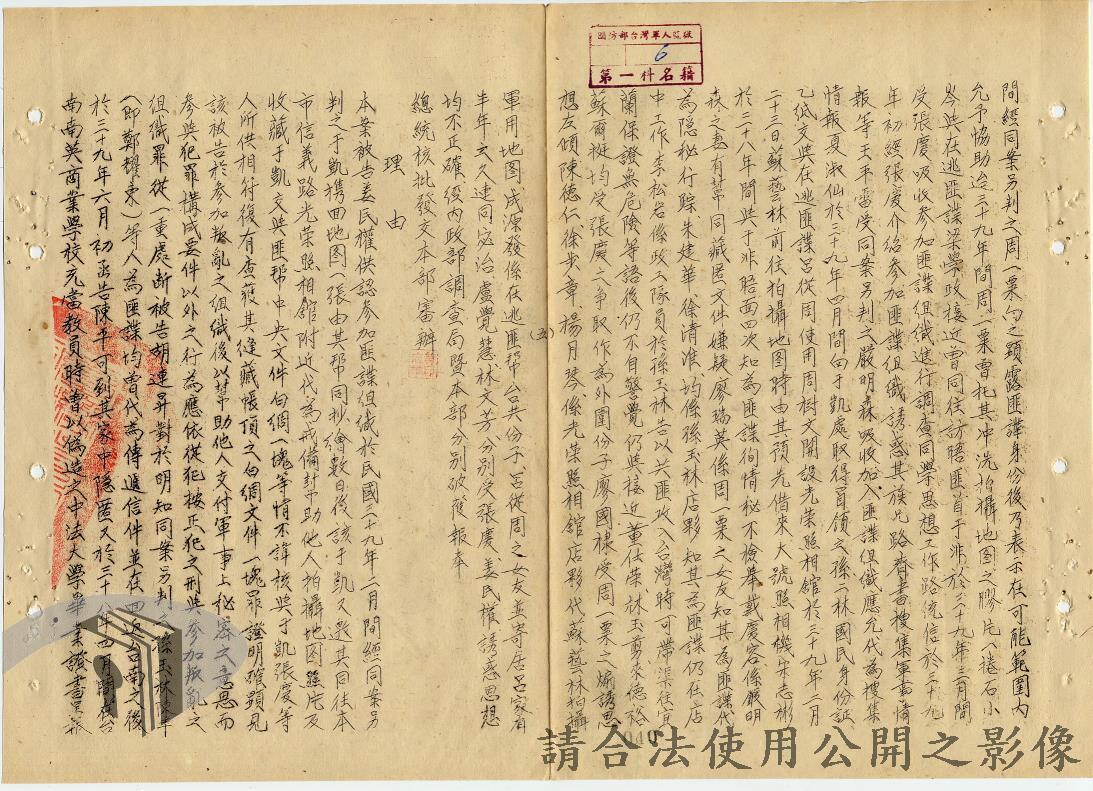 國防部台灣軍人監獄
6
第一科名籍
問經同案另判之周一粟勾之顕露匪諜身份後乃表示在可能範圍內
允予協助迨三十九年間周一粟曾托其冲洗拍攝地图之膠片一捲石小
岑與在逃匪諜梁學政接近曾同往訪晤匪首于非於三十九年三月間
受張慶吸收参加匪諜組織進行調查同學思想工作路流信於三十九
年初經張慶介绍参加匪諜組織誘惑其族兄路齐書搜集軍事情
報等王平雷受同案另判之嚴明森吸收加入匪諜組織應允代為搜集
情報夏淑仙於三十九年四月間向于凱處取得冒領之孫二林國民身份証
乙纸交與在逃匪諜呂從周使用周樹文開設光荣照相館於三十九年二月
二十三日蘇藝林前往拍攝地图時由其預先借來大號照相機朱志彬
於三十八年間與于非晤面四次知為匪諜徇情秘不檢舉戴慶容係嚴明
森之妻有帮同藏匿文件嫌疑廖瑞英係周一粟之女友知其為匪諜代
為隐秘行踪朱建華徐清淮均係孫玉林店夥知其為匪諜仍在店
中工作李松岩係政工隊員於孫玉林告以共匪攻入台灣時可帶渠往宜
蘭保證無危險等語後仍不自警覺仍與接近董仕荣林玉剪來德裕
蘇爾挺均受張慶之争取作為外圍份子廖國禄受周一粟之煽誘思
想左傾陳德仁徐步章楊月琴係光荣照相館店夥代蘇藝林拍攝
(五)
軍用地图成源發係在逃匪帮台共份子呂從周之女友並寄居呂家有
半年之久連同宓治盧覺慧林文芳分别受張慶姜民權誘惑思想
均不正確經内政部調查局暨本部分别破獲報奉
總統核批發交本部審辦
理由
本案被告姜民權供認参加匪諜組織於民國三十九年二月間經同案另
判之于凱携回地图一張由其帮同抄繪數日後該于凱又邀其同往本
市信義路光荣照相館附近代為戒備帮助他人拍攝地图照片及
收藏于凱交與匪帮中央文件白綢一塊等情不諱核與于凱張慶等
人所供相符復有查獲其缝藏帳頂之白綢文件一塊罪證明確顕見
該被告於参加叛亂之組織後以帮助他人交付軍事上秘密之意思而
参與犯罪構成要件以外之行為應依從犯按正犯之刑與参加叛亂之
組織罪從一重處断被告胡連昇對於明知同案另判之孫玉林陳平
(即鄭耀東)等人為匪諜均曾代為傳遞信件並在四返台南之後
於三十九年六月初函告陳平可到其家中隐匿又於三十八年四月間在台
南南英商業學校充當教員時曾以偽造之中法大學畢業證書呈報
040
請合法使用公開之影像